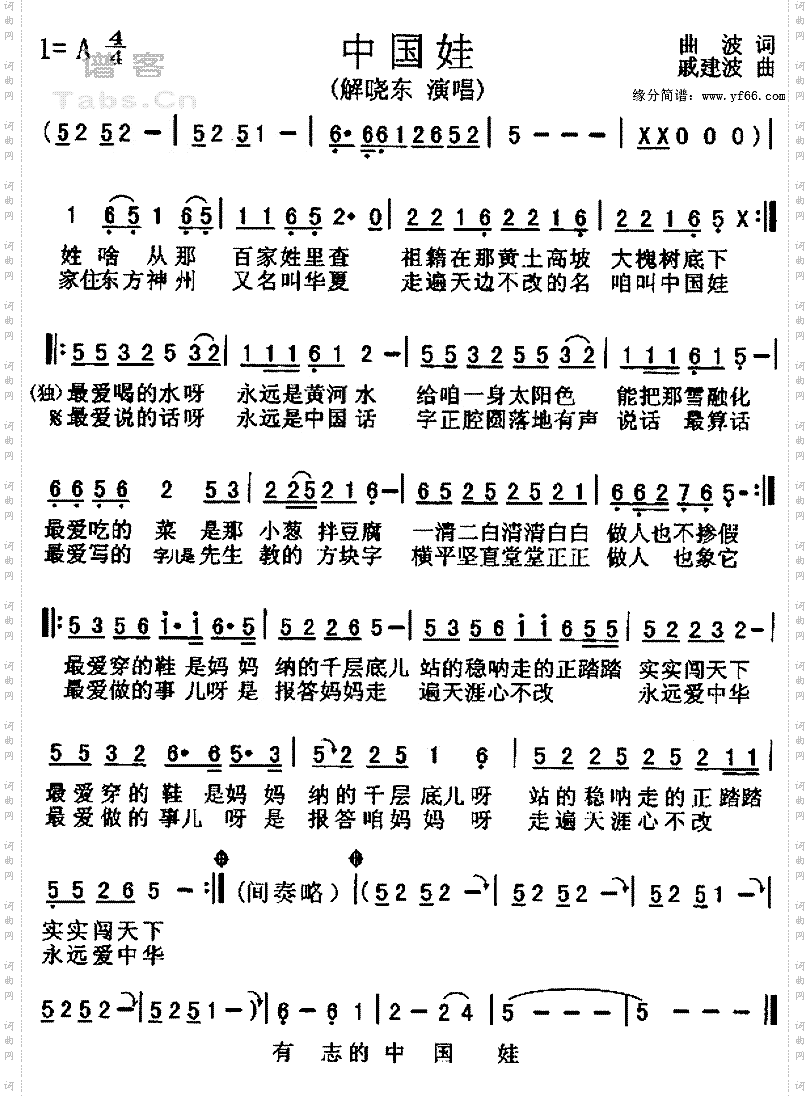 1= A 4/4
中国娃
曲 波 词
戚建波 曲
(解晓东 演唱)
谱客
Tabs.Cn
缘分简谱: www.yf66.com
(5252- | 5251- | 6·661 2652 | 5--- | XX000) |
1 65 1 65 | 1165 2·0 | 2216 2216 | 2216 5 X :||
姓啥 从那 百家姓里查 祖籍在那黄土高坡 大槐树底下
家住东方神州 又名叫华夏 走遍天边不改的名 咱叫中国娃
||: 5532 5 32 | 1116 12- | 5532 5532 | 1116 15- |
(独)最爱喝的水呀 永远是黄河水 给咱一身太阳色 能把那雪融化
最爱说的话呀 永远是中国话 字正腔圆落地有声 说话 最算话
6656 2 53 | 225216- | 6525 2521 | 662765- :||
最爱吃的 菜 是那 小葱 拌豆腐 一清二白清清白白 做人也不掺假
最爱写的 字儿是先生 教的 方块字 横平坚直堂堂正正 做人 也象它
||: 5356 i·i6·5 | 52265- | 5356 ii655 | 52232- |
最爱穿的鞋 是妈妈 纳的千层底儿 站的稳呐走的正踏踏 实实闯天下
最爱做的事 儿呀是 报答妈妈走 遍天涯心不改 永远爱中华
5532 6·65·3 | 5225 1 6 | 5225 25211 |
最爱穿的鞋 是妈妈 纳的千层底儿呀 站的稳呐走的正踏踏
最爱做的事儿 呀是 报答咱妈妈 呀 走遍天涯心不改
55265- :|| (间奏略) | (5252- | 5252- | 5251- |
实实闯天下
永远爱中华
5252- | 5251-) | 6-61 | 2-24 | 5--- | 5--- ||
有 志的中 国 娃